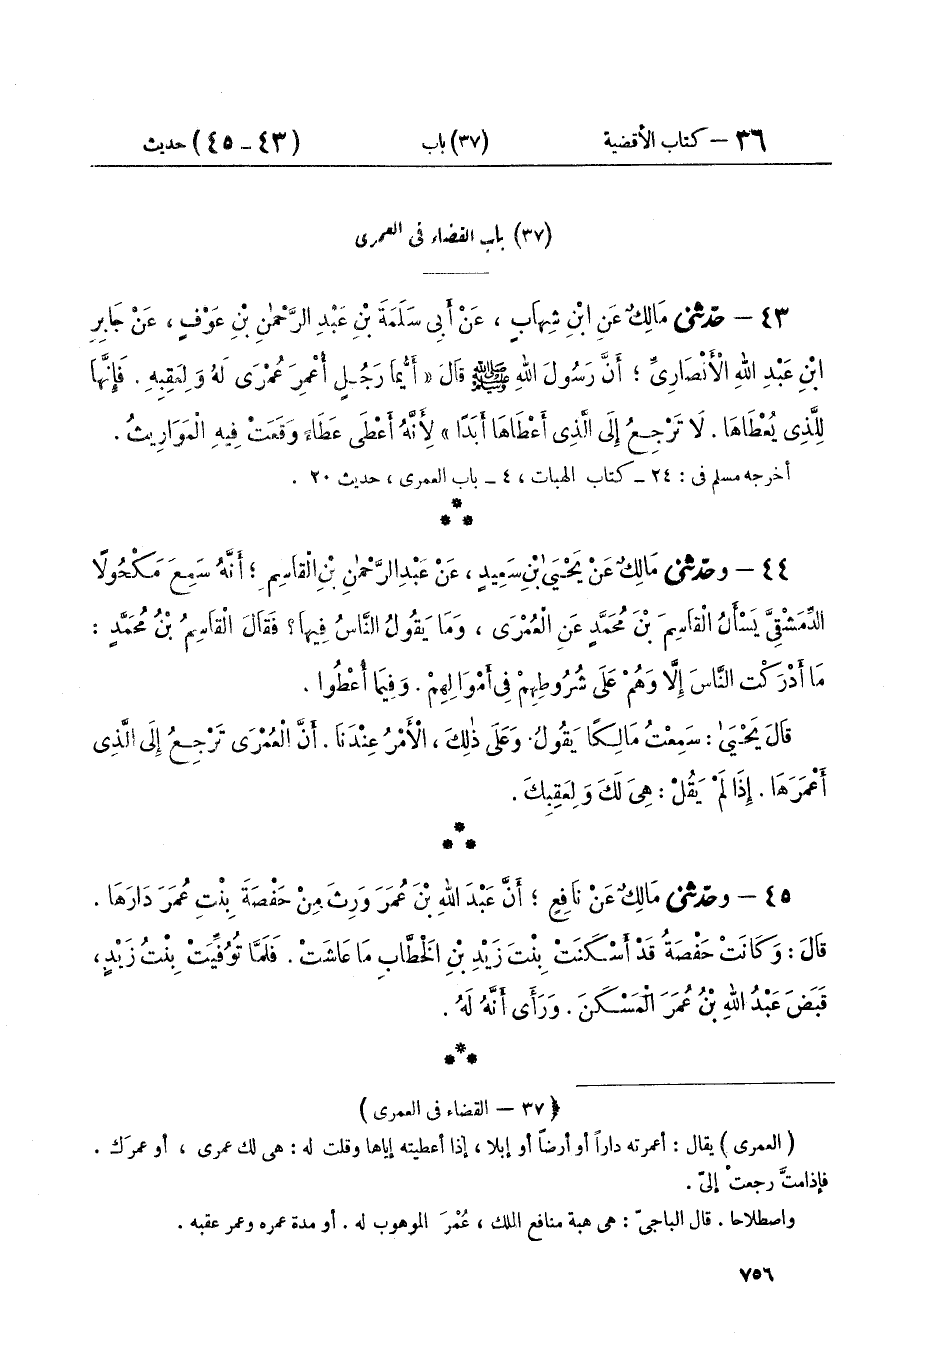 ٣٦ – كتاب الأقضية (٣٧) باب (٤٣ – ٤٥) حديث
(٣٧) باب القضاء فى العمرى
٤٣ – حدّثنى مَالِكٌ عَنِ ابْنِ شِهَابٍ ، عَنْ أَبِى سَلَمَةَ بْنِ عَبْدِ الرَّحْمٰنِ بْنِ عَوْفٍ ، عَنْ جَابِرِ
ابْنِ عَبْدِ اللهِ الْأَنْصَارِىِّ ؛ أَنَّ رَسُولَ اللهِ ﷺ قَالَ « أَيُّمَا رَجُلٍ أُعْمِرَ عُمْرَى لَهُ وَلِعَقِبِهِ . فَإِنَّهَا
لِلَّذِى يُعْطَاهَا . لَا تَرْجِعُ إِلَى الَّذِى أَعْطَاهَا أَبَدًا » لِأَنَّهُ أَعْطَى عَطَاءً وَقَعَتْ فِيهِ الْمَوَارِيثُ .
أخرجه مسلم فى : ٢٤ – كتاب الهبات ، ٤ – باب العمرى ، حديث ٢٠ .
٤٤ – وحدّثنى مَالِكٌ عَنْ يَحْيَى بْنِ سَعِيدٍ ، عَنْ عَبْدِ الرَّحْمٰنِ بْنِ الْقَاسِمِ ؛ أَنَّهُ سَمِعَ مَكْحُولًا
الدِّمَشْقِىَّ يَسْأَلُ الْقَاسِمَ بْنَ مُحَمَّدٍ عَنِ الْعُمْرَى ، وَمَا يَقُولُ النَّاسُ فِيهَا ؟ فَقَالَ الْقَاسِمُ بْنُ مُحَمَّدٍ :
مَا أَدْرَكْتُ النَّاسَ إِلَّا وَهُمْ عَلَى شُرُوطِهِمْ فِى أَمْوَالِهِمْ . وَفِيمَا أُعْطُوا .
قَالَ يَحْيَىٰ : سَمِعْتُ مَالِكًا يَقُولُ : وَعَلَى ذٰلِكَ ، الْأَمْرُ عِنْدَنَا . أَنَّ الْعُمْرَى تَرْجِعُ إِلَى الَّذِى
أَعْمَرَهَا . إِذَا لَمْ يَقُلْ : هِىَ لَكَ وَلِعَقِبِكَ .
٤٥ – وحدّثنى مَالِكٌ عَنْ نَافِعٍ ؛ أَنَّ عَبْدَ اللهِ بْنَ عُمَرَ وَرِثَ مِنْ حَفْصَةَ بِنْتِ عُمَرَ دَارَهَا .
قَالَ : وَكَانَتْ حَفْصَةُ قَدْ أَسْكَنَتْ بِنْتَ زَيْدِ بْنِ الْخَطَّابِ مَا عَاشَتْ . فَلَمَّا تُوُفِّيَتْ بِنْتُ زَيْدٍ ،
قَبَضَ عَبْدُ اللهِ بْنُ عُمَرَ الْمَسْكَنَ . وَرَأَى أَنَّهُ لَهُ .
( ٣٧ – القضاء فى العمرى )
( العمرى ) يقال : أعمرته داراً أو أرضاً أو إبلا ، إذا أعطيته إياها وقلت له : هى لك عمرى ، أو عمرَك .
فإذا متَّ رجعتْ إلىّ .
واصطلاحا . قال الباجىّ : هى هبة منافع الملك ، عُمْرَ الموهوب له . أو مدة عمره وعمر عقبه .
٧٥٦